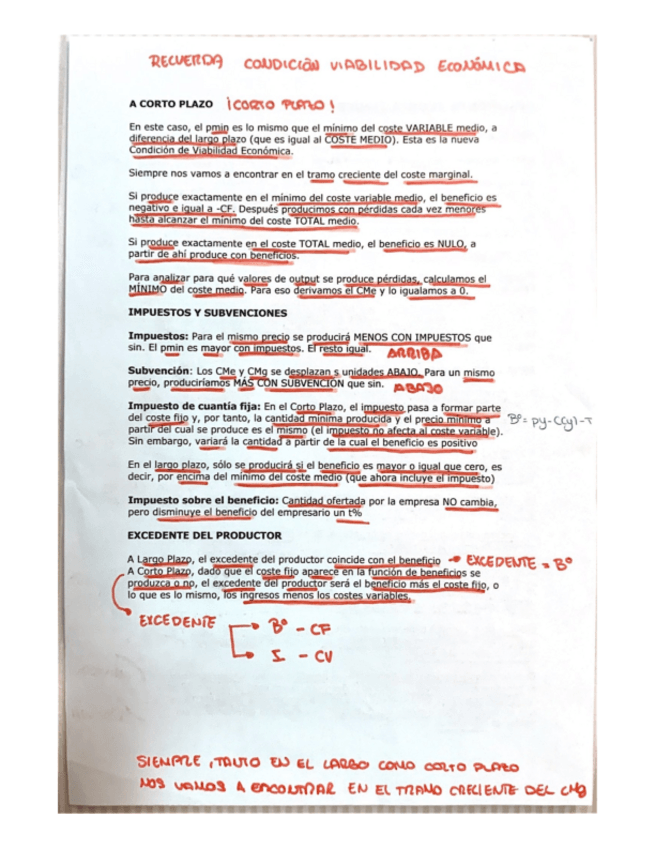 RECUERDA CONDICIÓN VIABILIDAD ECONÓMICA
A CORTO PLAZO ¡CORTO PLAZO!
En este caso, el pmin es lo mismo que el mínimo del coste VARIABLE medio, a
diferencia del largo plazo (que es igual al COSTE MEDIO). Esta es la nueva
Condición de Viabilidad Económica.
Siempre nos vamos a encontrar en el tramo creciente del coste marginal.
Si produce exactamente en el mínimo del coste variable medio, el beneficio es
negativo e igual a -CF. Después producimos con pérdidas cada vez menores
hasta alcanzar el mínimo del coste TOTAL medio.
Si produce exactamente en el coste TOTAL medio, el beneficio es NULO, a
partir de ahí produce con beneficios.
Para analizar para qué valores de output se produce pérdidas, calculamos el
MÍNIMO del coste medio. Para eso derivamos el CMe y lo igualamos a 0.
IMPUESTOS Y SUBVENCIONES
Impuestos: Para el mismo precio se producirá MENOS CON IMPUESTOS que
sin. El pmin es mayor con impuestos. El resto igual. ARRIBA
Subvención: Los CMe y CMg se desplazan s unidades ABAJO. Para un mismo
precio, produciríamos MÁS CON SUBVENCIÓN que sin. ABAJO
Impuesto de cuantía fija: En el Corto Plazo, el impuesto pasa a formar parte
del coste fijo y, por tanto, la cantidad mínima producida y el precio mínimo a Bº = py-C(y)-T
partir del cual se produce es el mismo (el impuesto no afecta al coste variable).
Sin embargo, variará la cantidad a partir de la cual el beneficio es positivo
En el largo plazo, sólo se producirá si el beneficio es mayor o igual que cero, es
decir, por encima del mínimo del coste medio (que ahora incluye el impuesto)
Impuesto sobre el beneficio: Cantidad ofertada por la empresa NO cambia,
pero disminuye el beneficio del empresario un t%
EXCEDENTE DEL PRODUCTOR
A Largo Plazo, el excedente del productor coincide con el beneficio → EXCEDENTE = Bº
A Corto Plazo, dado que el coste fijo aparece en la función de beneficios se
produzca o no, el excedente del productor será el beneficio más el coste fijo, o
lo que es lo mismo, los ingresos menos los costes variables.
EXCEDENTE → Bº - CF
→ I - CV
SIEMPRE, TANTO EN EL LARGO COMO CORTO PLAZO
NOS VAMOS A ENCONTRAR EN EL TRAMO CRECIENTE DEL CMg